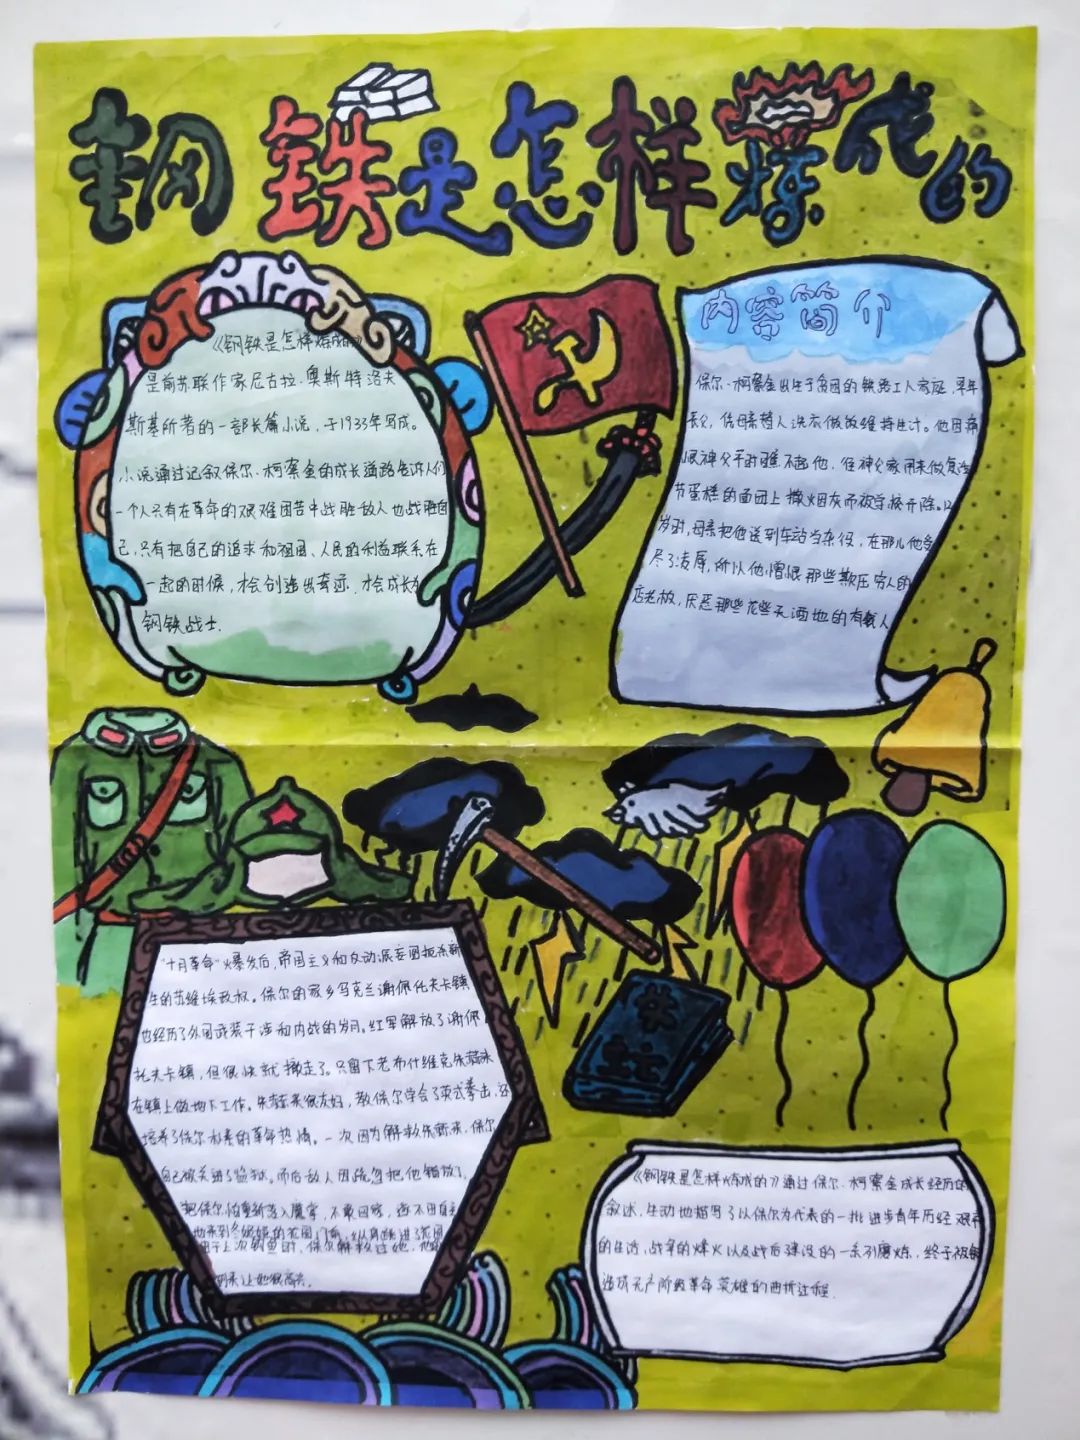 钢铁是怎样炼成的
《钢铁是怎样炼成的》
是前苏联作家尼古拉·奥斯特洛夫
斯基所著的一部长篇小说,于1933年写成。
小说通过记叙保尔·柯察金的成长道路告诉人们
一个人只有在革命的艰难困苦中战胜敌人也战胜自
己,只有把自己的追求和祖国、人民的利益联系在
一起的时候,才会创造出奇迹,才会成长为
钢铁战士.
内容简介
保尔·柯察金出生于贫困的铁路工人家庭,早年
丧父,凭母亲替人洗衣做饭维持生计。他因痛
恨神父平时瞧不起他,往神父家用来做复活
节蛋糕的面团上撒烟灰而被学校开除。12
岁时,母亲把他送到车站当杂役,在那儿他受
尽了凌辱,所以他憎恨那些欺压穷人的
店老板,厌恶那些花天酒地的有钱人
朱
"十月革命"爆发后,帝国主义和反动派妄图扼杀新
生的苏维埃政权。保尔的家乡乌克兰谢佩托夫卡镇
也经历了外国武装干涉和内战的岁月。红军解放了谢佩
托夫卡镇,但很快就撤走了。只留下老布什维克朱赫来
在镇上做地下工作。朱赫来很友好,教保尔学会了英式拳击,还
培养了保尔朴素的革命热情。一次因为解救朱赫来,保尔
自己被关进了监狱。而后敌人因疏忽把他错放了。
把保尔怕重新落入魔掌,不敢回家,遂不由自主
地来到冬妮娅的花园门前,纵身跳进了花园
由于上次钓鱼时,保尔解救过她,
到来让她很高兴.
《钢铁是怎样炼成的》通过保尔·柯察金成长经历的
叙述,生动地描写了以保尔为代表的一批进步青年历经艰辛
的生活,战争的烽火以及战后建设的一系列磨炼,终于被锻
造成无产阶级革命英雄的曲折过程.